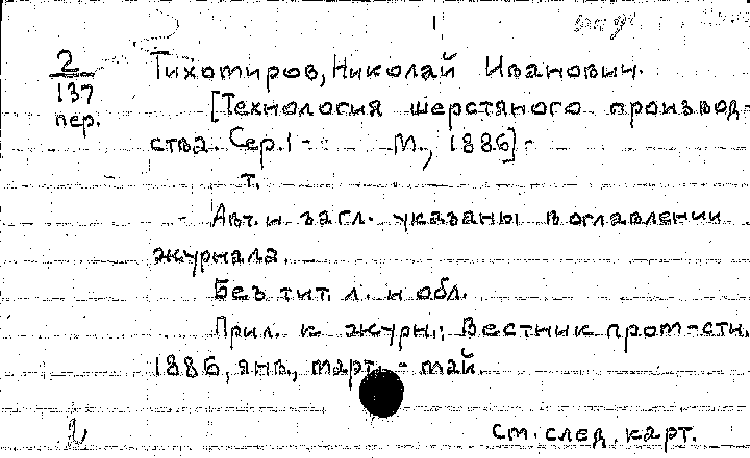 2
137
пер.
Тихомиров, Николай Иванович.
[Технология шерстяного производ-
ства. Сер. 1 - М., 1886] -
т.
Авт. и загл. указаны в оглавлении
журнала.
Без тит. л. и обл.
Прил. к журн.: Вестник пром-сти.
1886, янв., март - май.
см. след. карт.